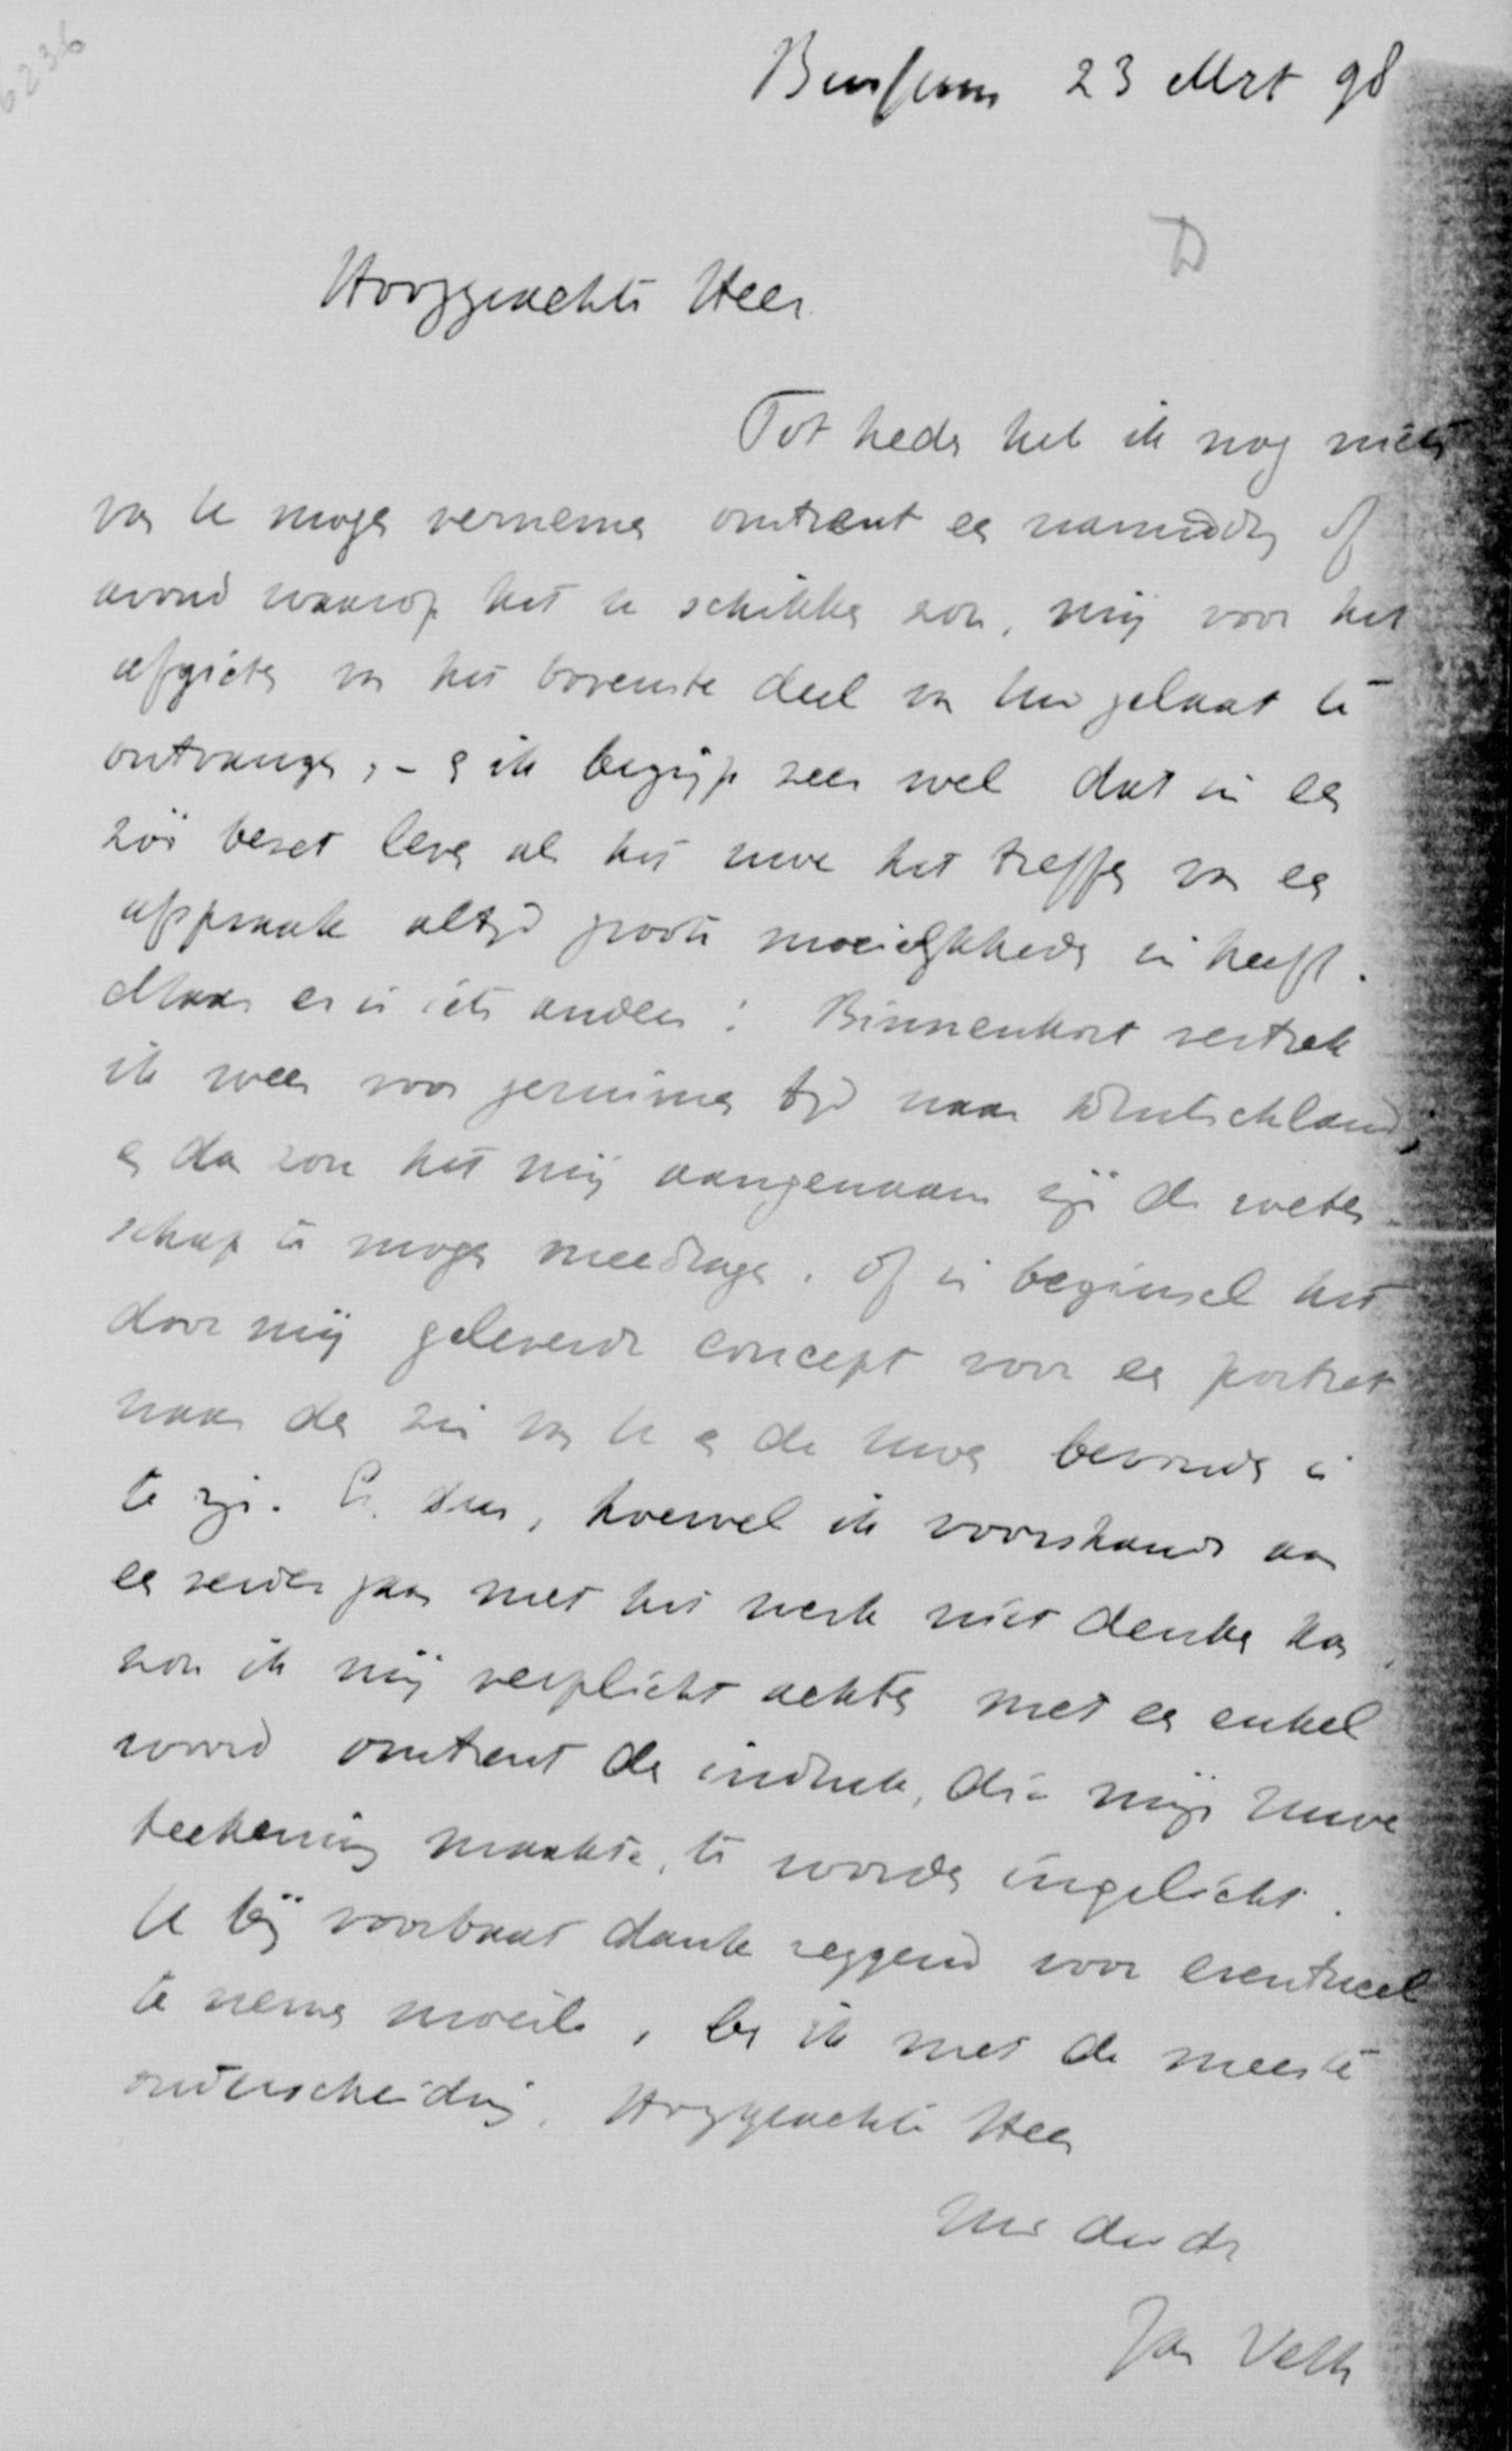 6236
Bussum 23 Mrt 98
D
Hooggeachte Heer
Tot heden heb ik nog niets
van U mogen vernemen omtrent een namiddag of
avond waarop het U schikken zou, mij voor het
afgieten van het bovenste deel van Uw gelaat te
ontvangen, – en ik begrijp zeer wel dat in een
zóó bezet leven als het uwe het treffen van een
afspraak altijd groote moeielijkheden in heeft.
Maar er is iets anders: Binnenkort vertrek
ik weer voor geruimen tijd naar Deutschland,
en dan zou het mij aangenaam zijn de weten-
schap te mogen meedragen, of in beginsel het
door mij geleverde concept voor een portret
naar den zin van U en de Uwen bevonden is
te zijn. En dus, hoewel ik voorshands aan
een verder gaan met het werk niet denken kan,
zou ik mij verplicht achten met een enkel
woord omtrent den indruk, dien mijn ruwe
teekening maakte, te worden ingelicht.
U bij voorbaat dank zeggend voor eventueel
te nemen moeite, ben ik met de meeste
onderscheiding, Hooggeachte Heer
Uw dw dr
Jan Veth